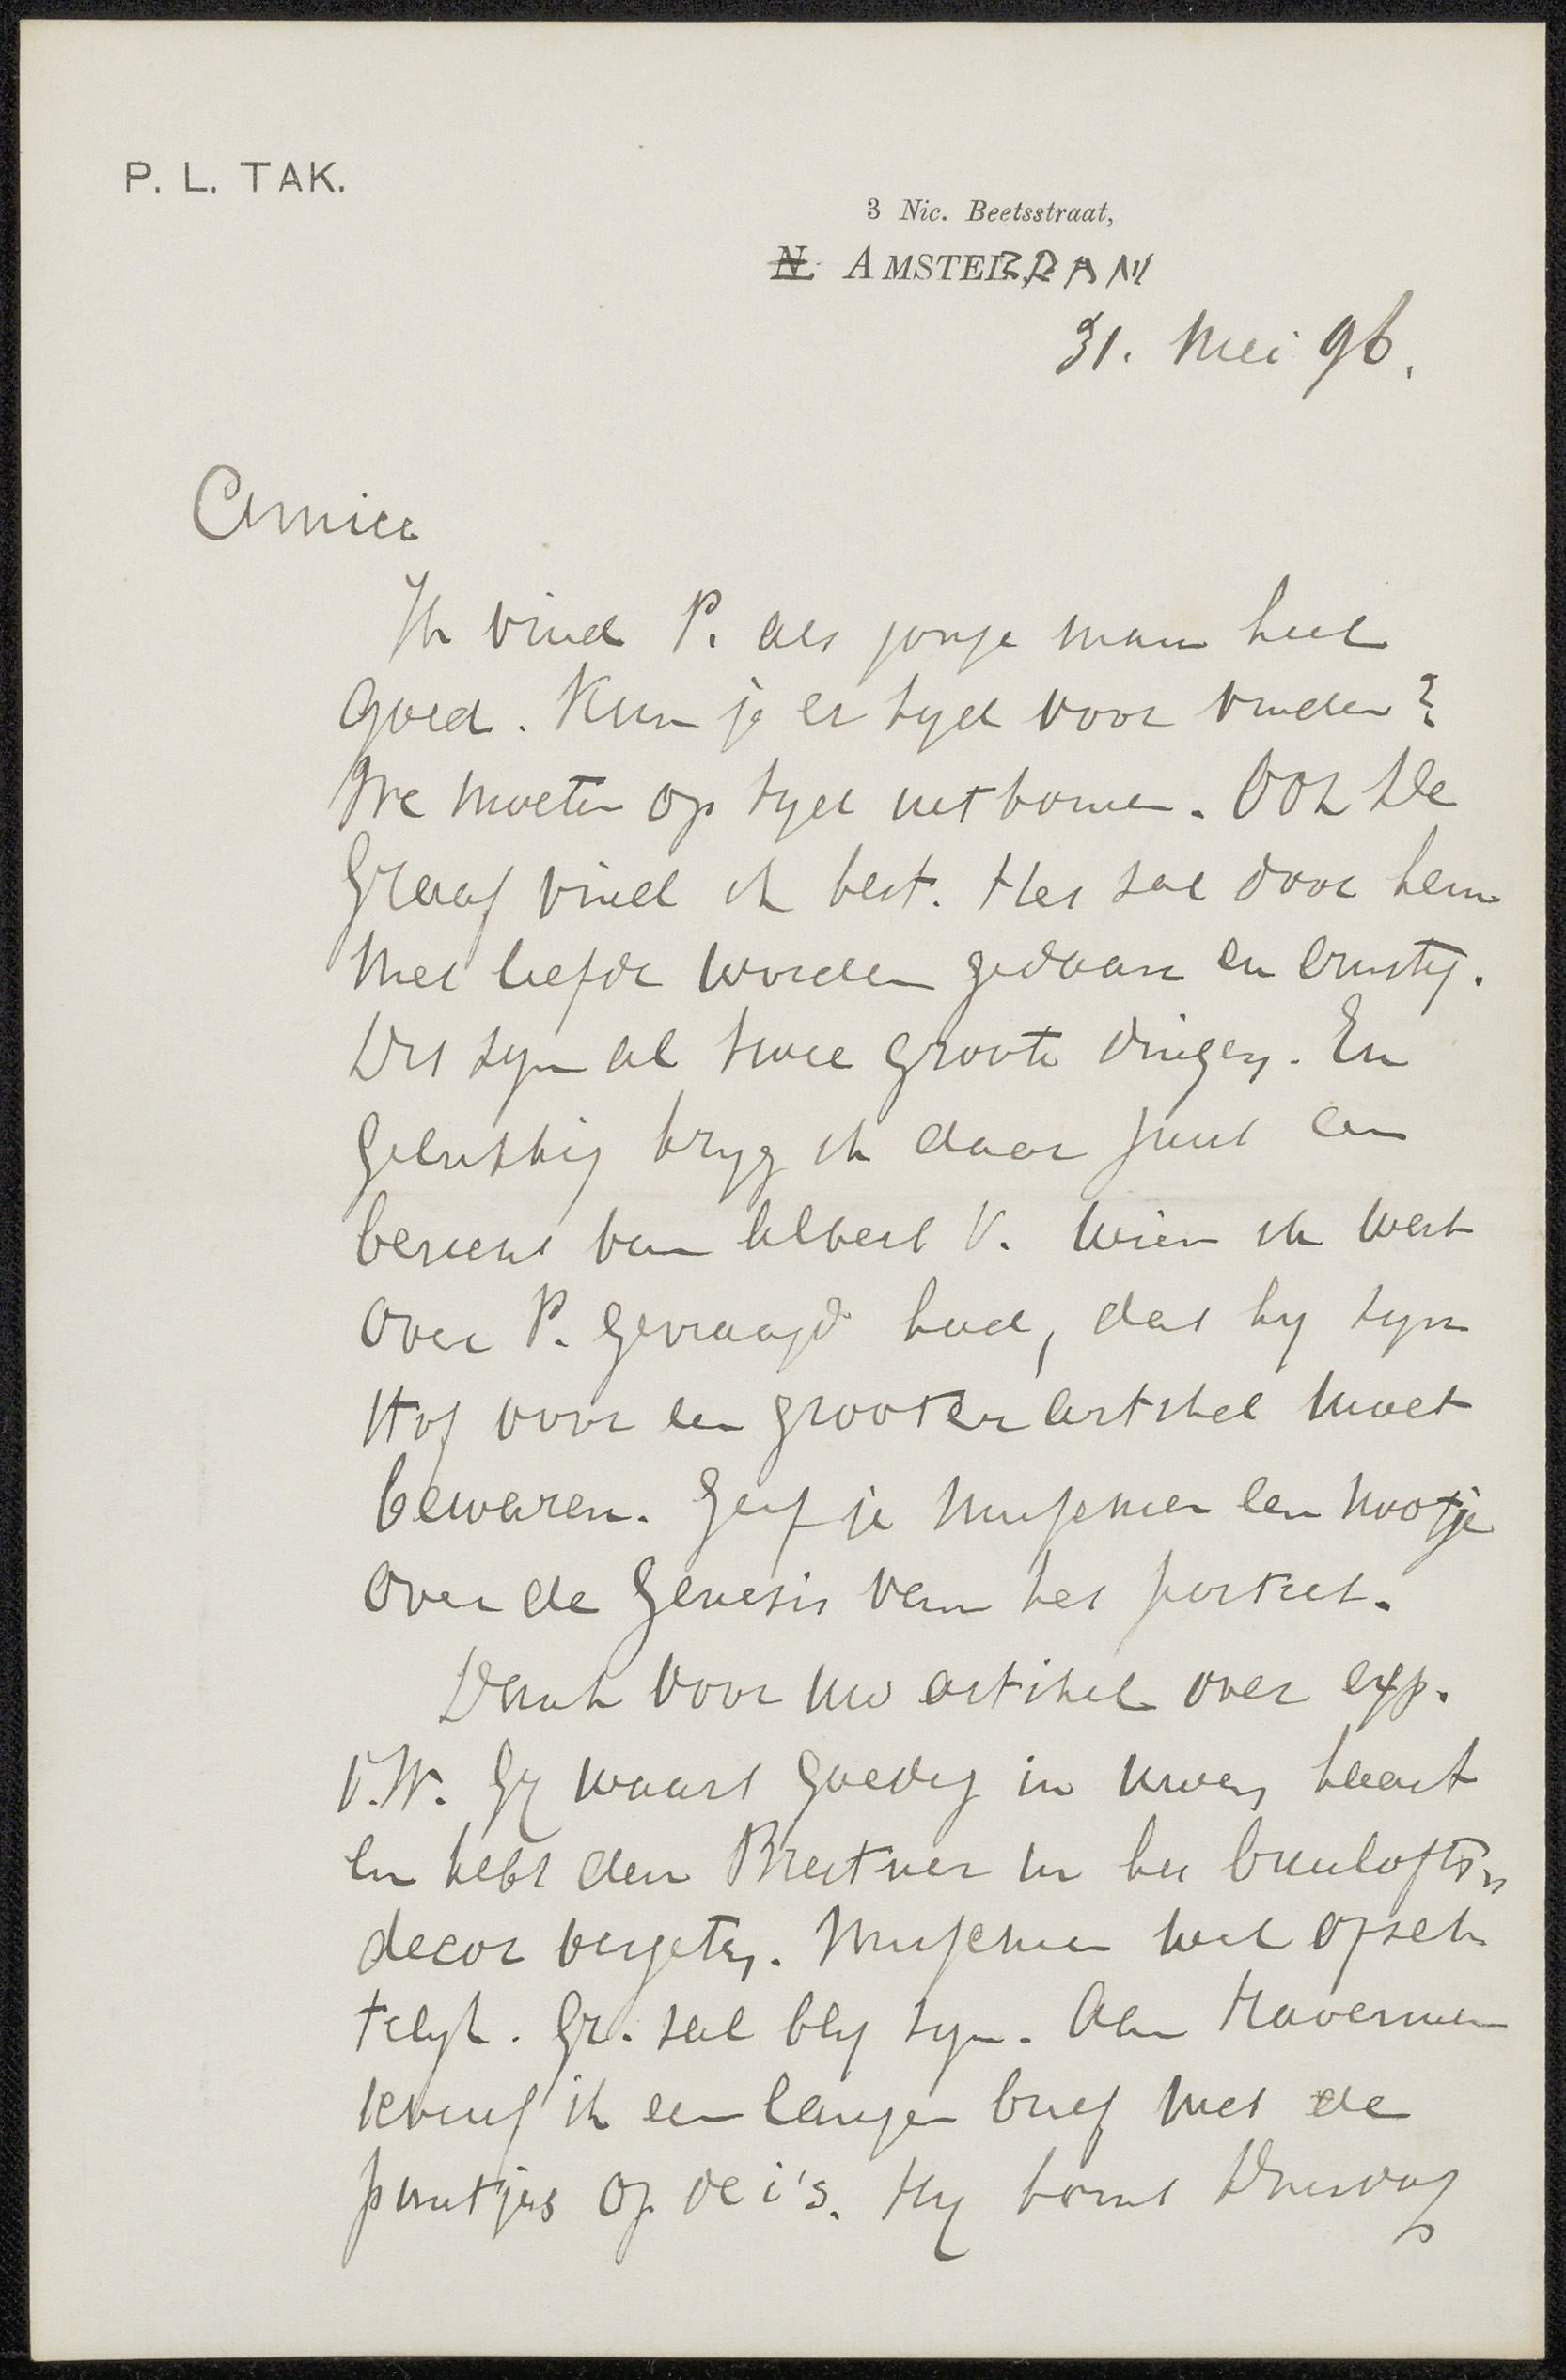 P. L. TAK.
3 Nic. Beetsstraat,
N. AMSTERDAM
31. Mei 96.
Amice
Ik vind P. als jonge man heel
goed. Kun je er tyd voor vinden?
We moeten op tyd uitkomen. Ook de
Graaf vind ik best. Het zal door hem
met liefde worden gedaan en ernstig.
Dit zyn al twee groote dingen. En
gelukkig kryg ik daar juist een
bericht van Albert V. wien ik werk
over P. gevraagd had, dat hy zyn
stof voor een grooter artikel moet
bewaren. Geef je Muschien een nootje
over de Genesis van het portret.
Dank voor uw artikel over exp.
V.W. Gy waart goedig in uwen haart
en hebt den Breitner in het bruilofts„
decor vergeten. Misschien wel opzet„
telyk. Gr. zal bly zyn. Aan Haverman
schreef ik een langen brief met de
puntjes op de i's. Hy komt Dinsdag